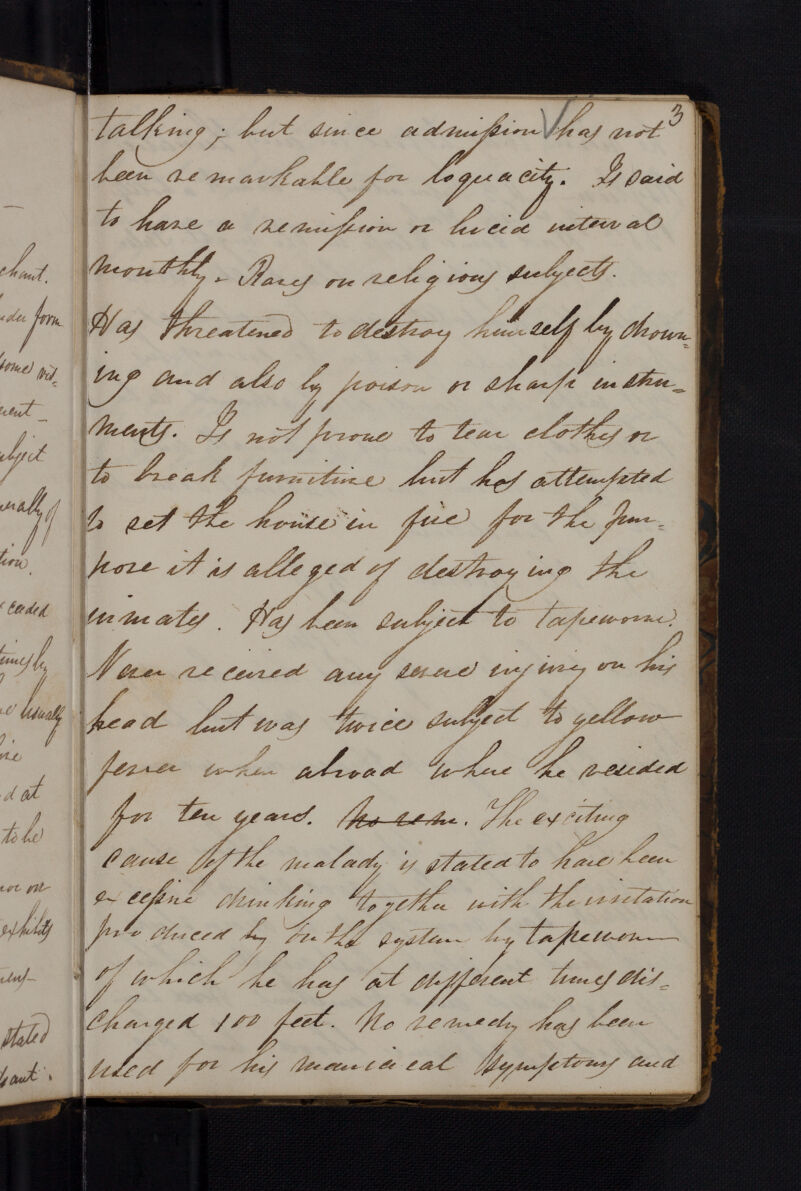 3
talking; but since admission has not
been remarkable for loquacity. Is said
to have a remission or lucid interval
monthly. Raves on religious subjects.
Has threatened to destroy himself by drown=
ing and also by poison or sharp instru=
ments. Is not prone to tear clothes or
to break furniture but has attempted
to set the house in fire for the pur=
pose it is alleged of destroying the
inmates. Has been subject to tapeworm.
Never received any severe injury on his
head but was twice subject to yellow
fever when abroad where he resided
for ten years. No rem. The exciting
cause of the malady is stated to have been
excessive drinking together with the irritation
produced by on the system by tapeworm
of which he has at different times dis=
charged 100 feet. No remedy has been
used for his maniacal symptoms and
chant.
form
some
ject
tion.
ceeded
times by
usually
d at
to be
or on
exhibits
stated